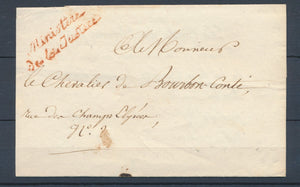 Ministère
de la Justice
A Monsieur
le Chevalier de Bourbon-Conti,
rue des Champs Elysées,
N.º